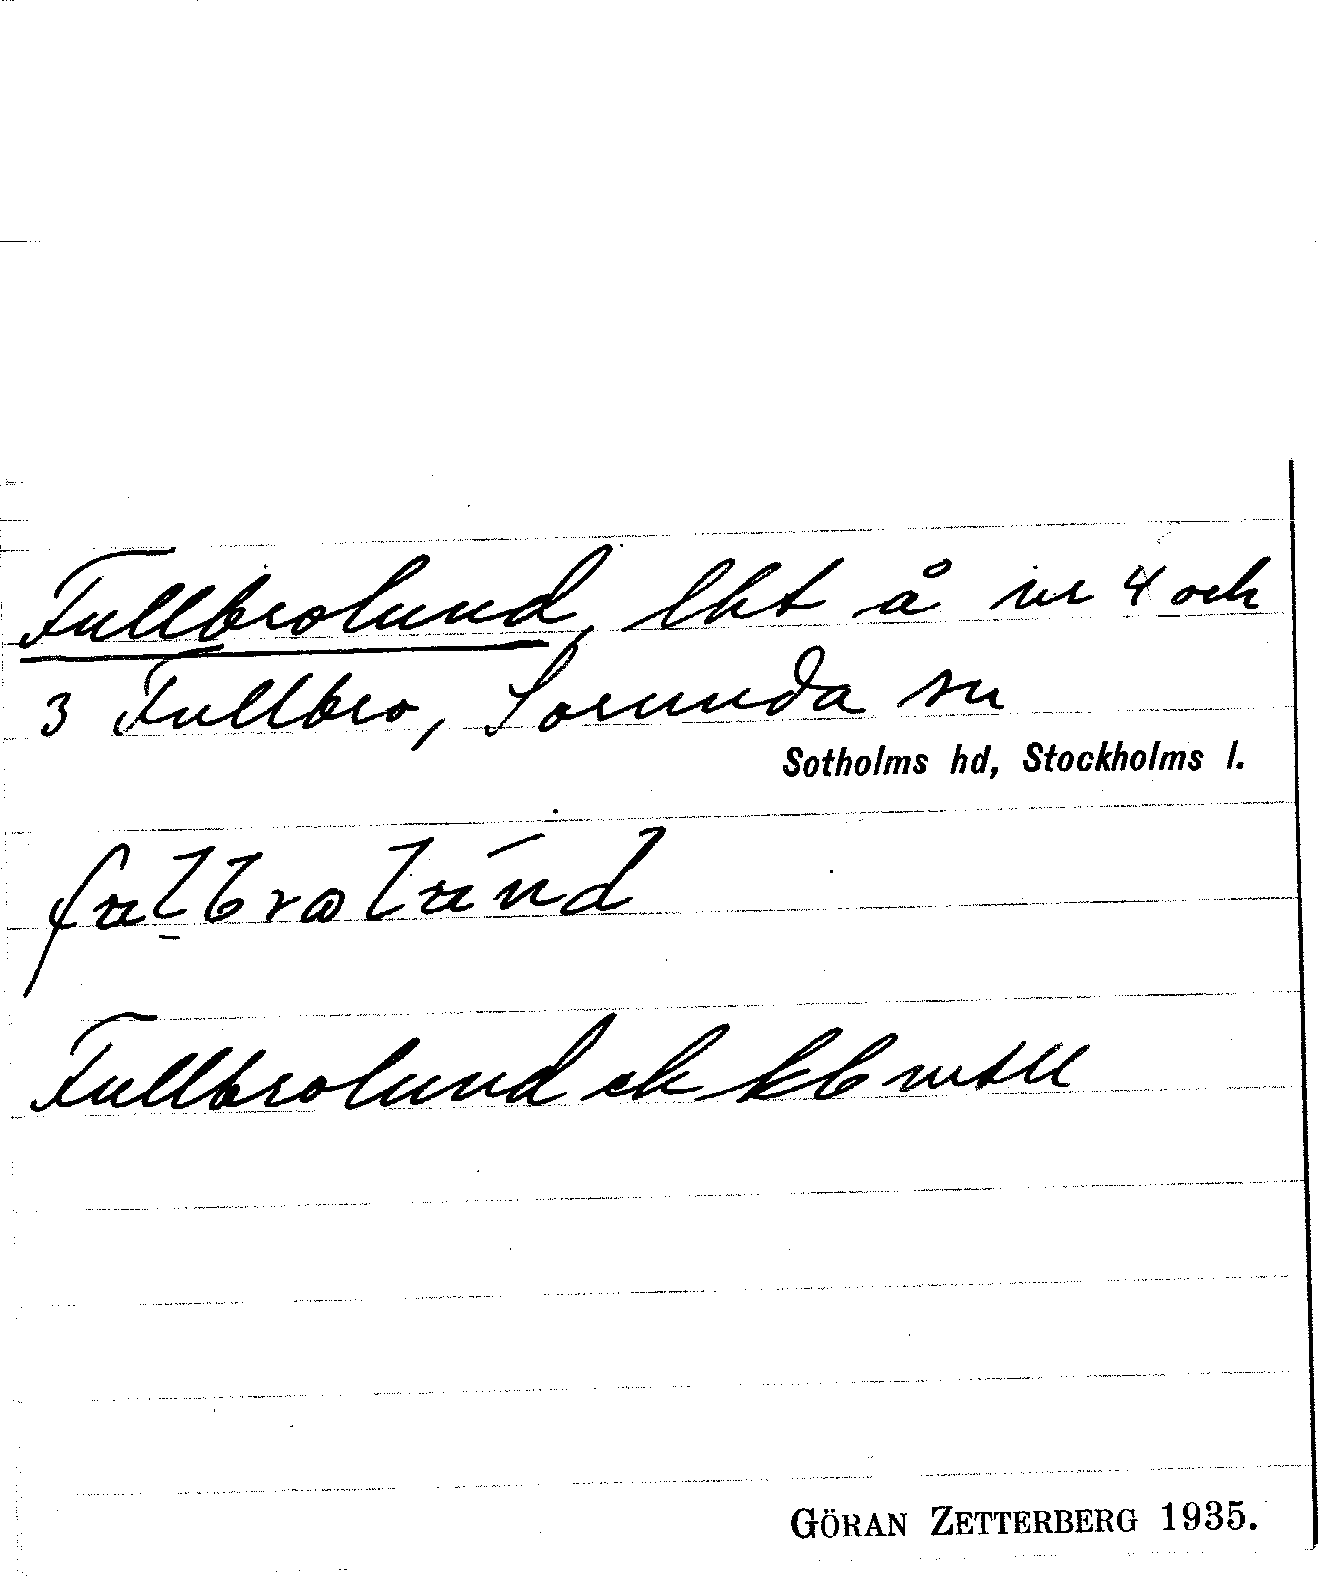 Fullbrolund, lht å nr 4 och
3 Fullbro, Sorunda sn
Sotholms hd, Stockholms l.
Fullbrolund ek kb
GÖRAN ZETTERBERG 1935.